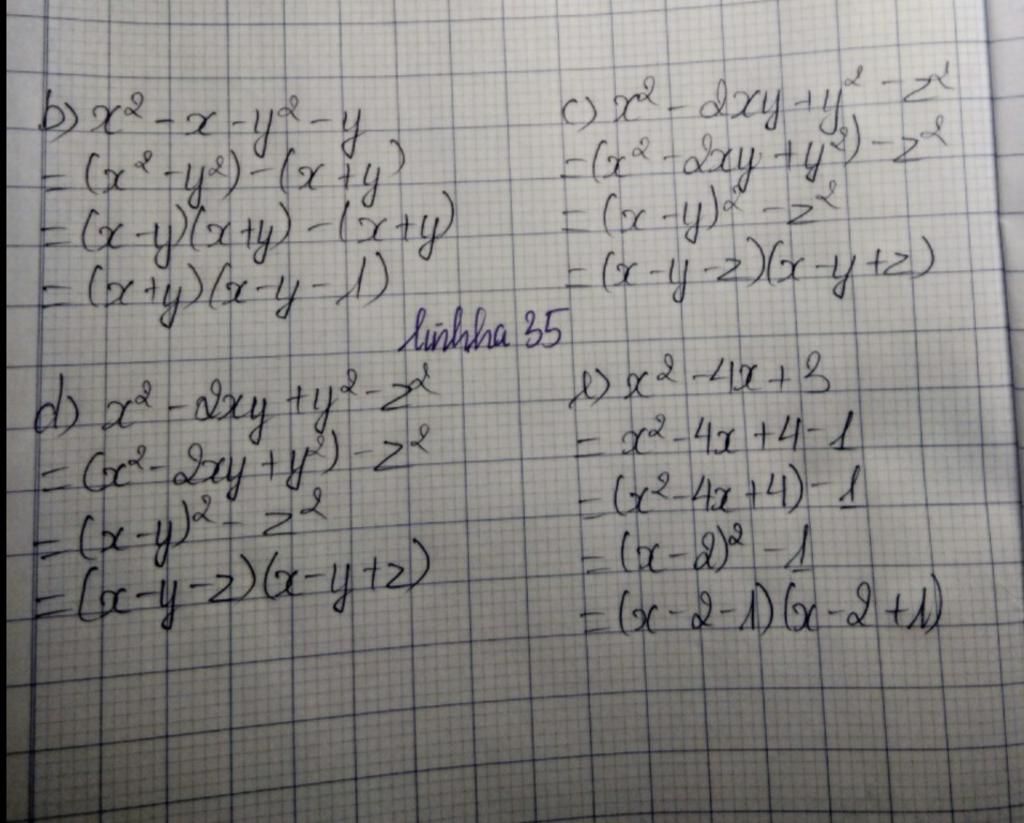 b) x² - x - y² - y
= (x² - y²) - (x + y)
= (x - y)(x + y) - (x + y)
= (x + y)(x - y - 1)
c) x² - 2xy + y² - z²
= (x² - 2xy + y²) - z²
= (x - y)² - z²
= (x - y - z)(x - y + z)
linhha 35
d) x² - 2xy + y² - z²
= (x² - 2xy + y²) - z²
= (x - y)² - z²
= (x - y - z)(x - y + z)
e) x² - 4x + 3
= x² - 4x + 4 - 1
= (x² - 4x + 4) - 1
= (x - 2)² - 1
= (x - 2 - 1)(x - 2 + 1)